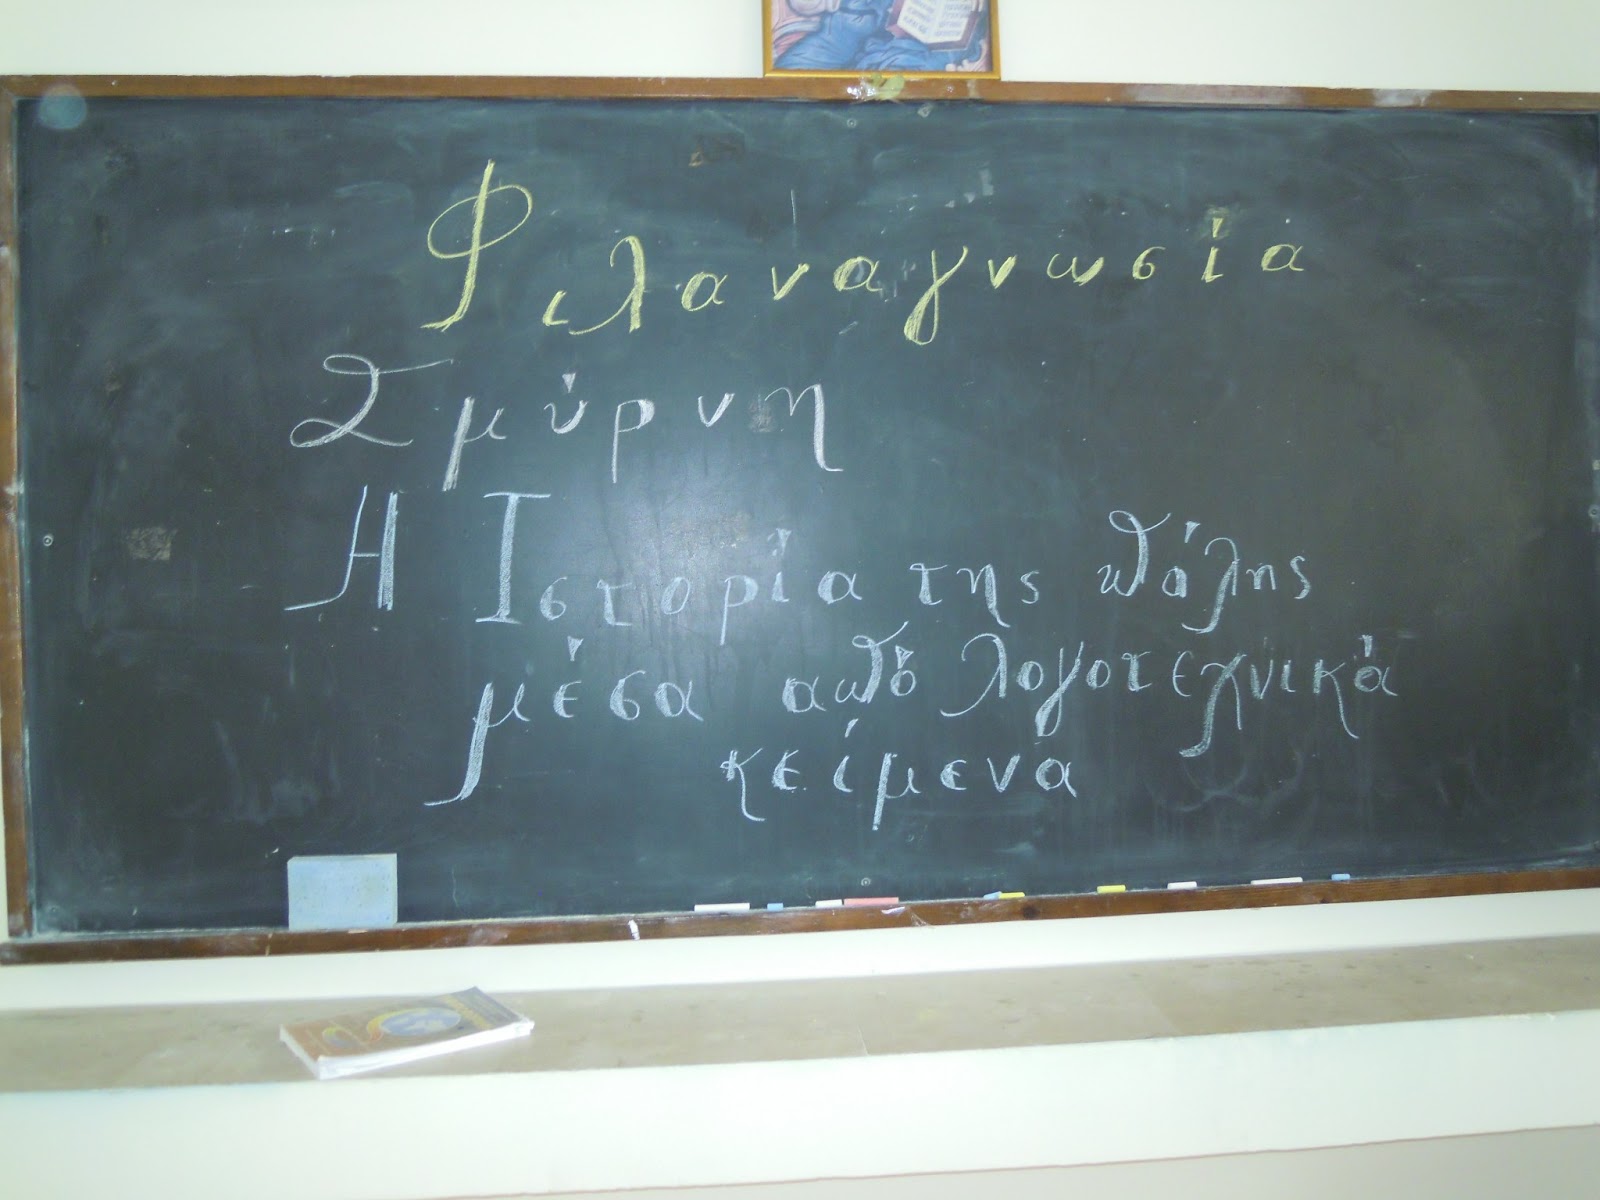 Φιλαναγνωσία
Σμύρνη
Η Ιστορία της πόλης
μέσα από λογοτεχνικά
κείμενα